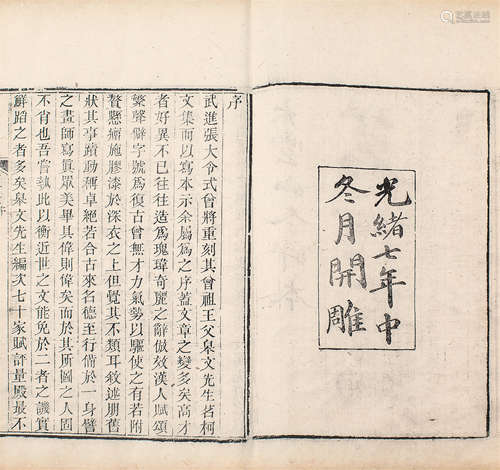 光緒七年中
冬月開雕
序
武進張大令式曾將重刻其曾祖王父皐文先生茗柯
文集而以寫本示余屬爲之序蓋文章之變多矣高才
者好異不已往往造爲瑰瑋奇麗之辭倣效漢人賦頌
繁聲僻字號爲復古曾無才力氣勢以驅使之有若附
贅懸疣施膠漆於深衣之上但覺其不類耳敘述朋舊
狀其事蹟動稱卓絕若合古來名德至行備於一身譬
之畫師寫眞眾美畢具偉則偉矣而於其所圖之人固
不肖也吾嘗執此以衡近世之文能免於二者之譏實
鮮蹈之者多矣皐文先生編次七十家賦評量殿最不